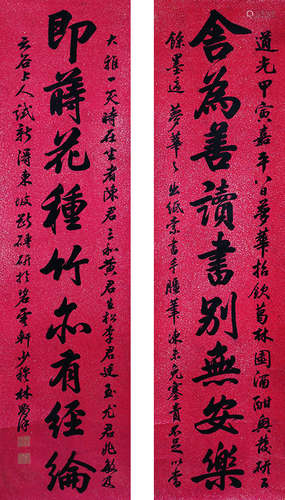 道光甲寅嘉平八日夢華招飲葛林園酒酣興發研
舍為善讀書別無安樂
餘墨適夢華出紙索書手腕筆凍未免塞責不足以書
大雅一笑時在坐者陳君立和黃君生松李君 尤君兆敏及
即蒔花種竹亦有經綸
云谷上人試新得東坡斷碑研於茗雲軒少穆林則徐